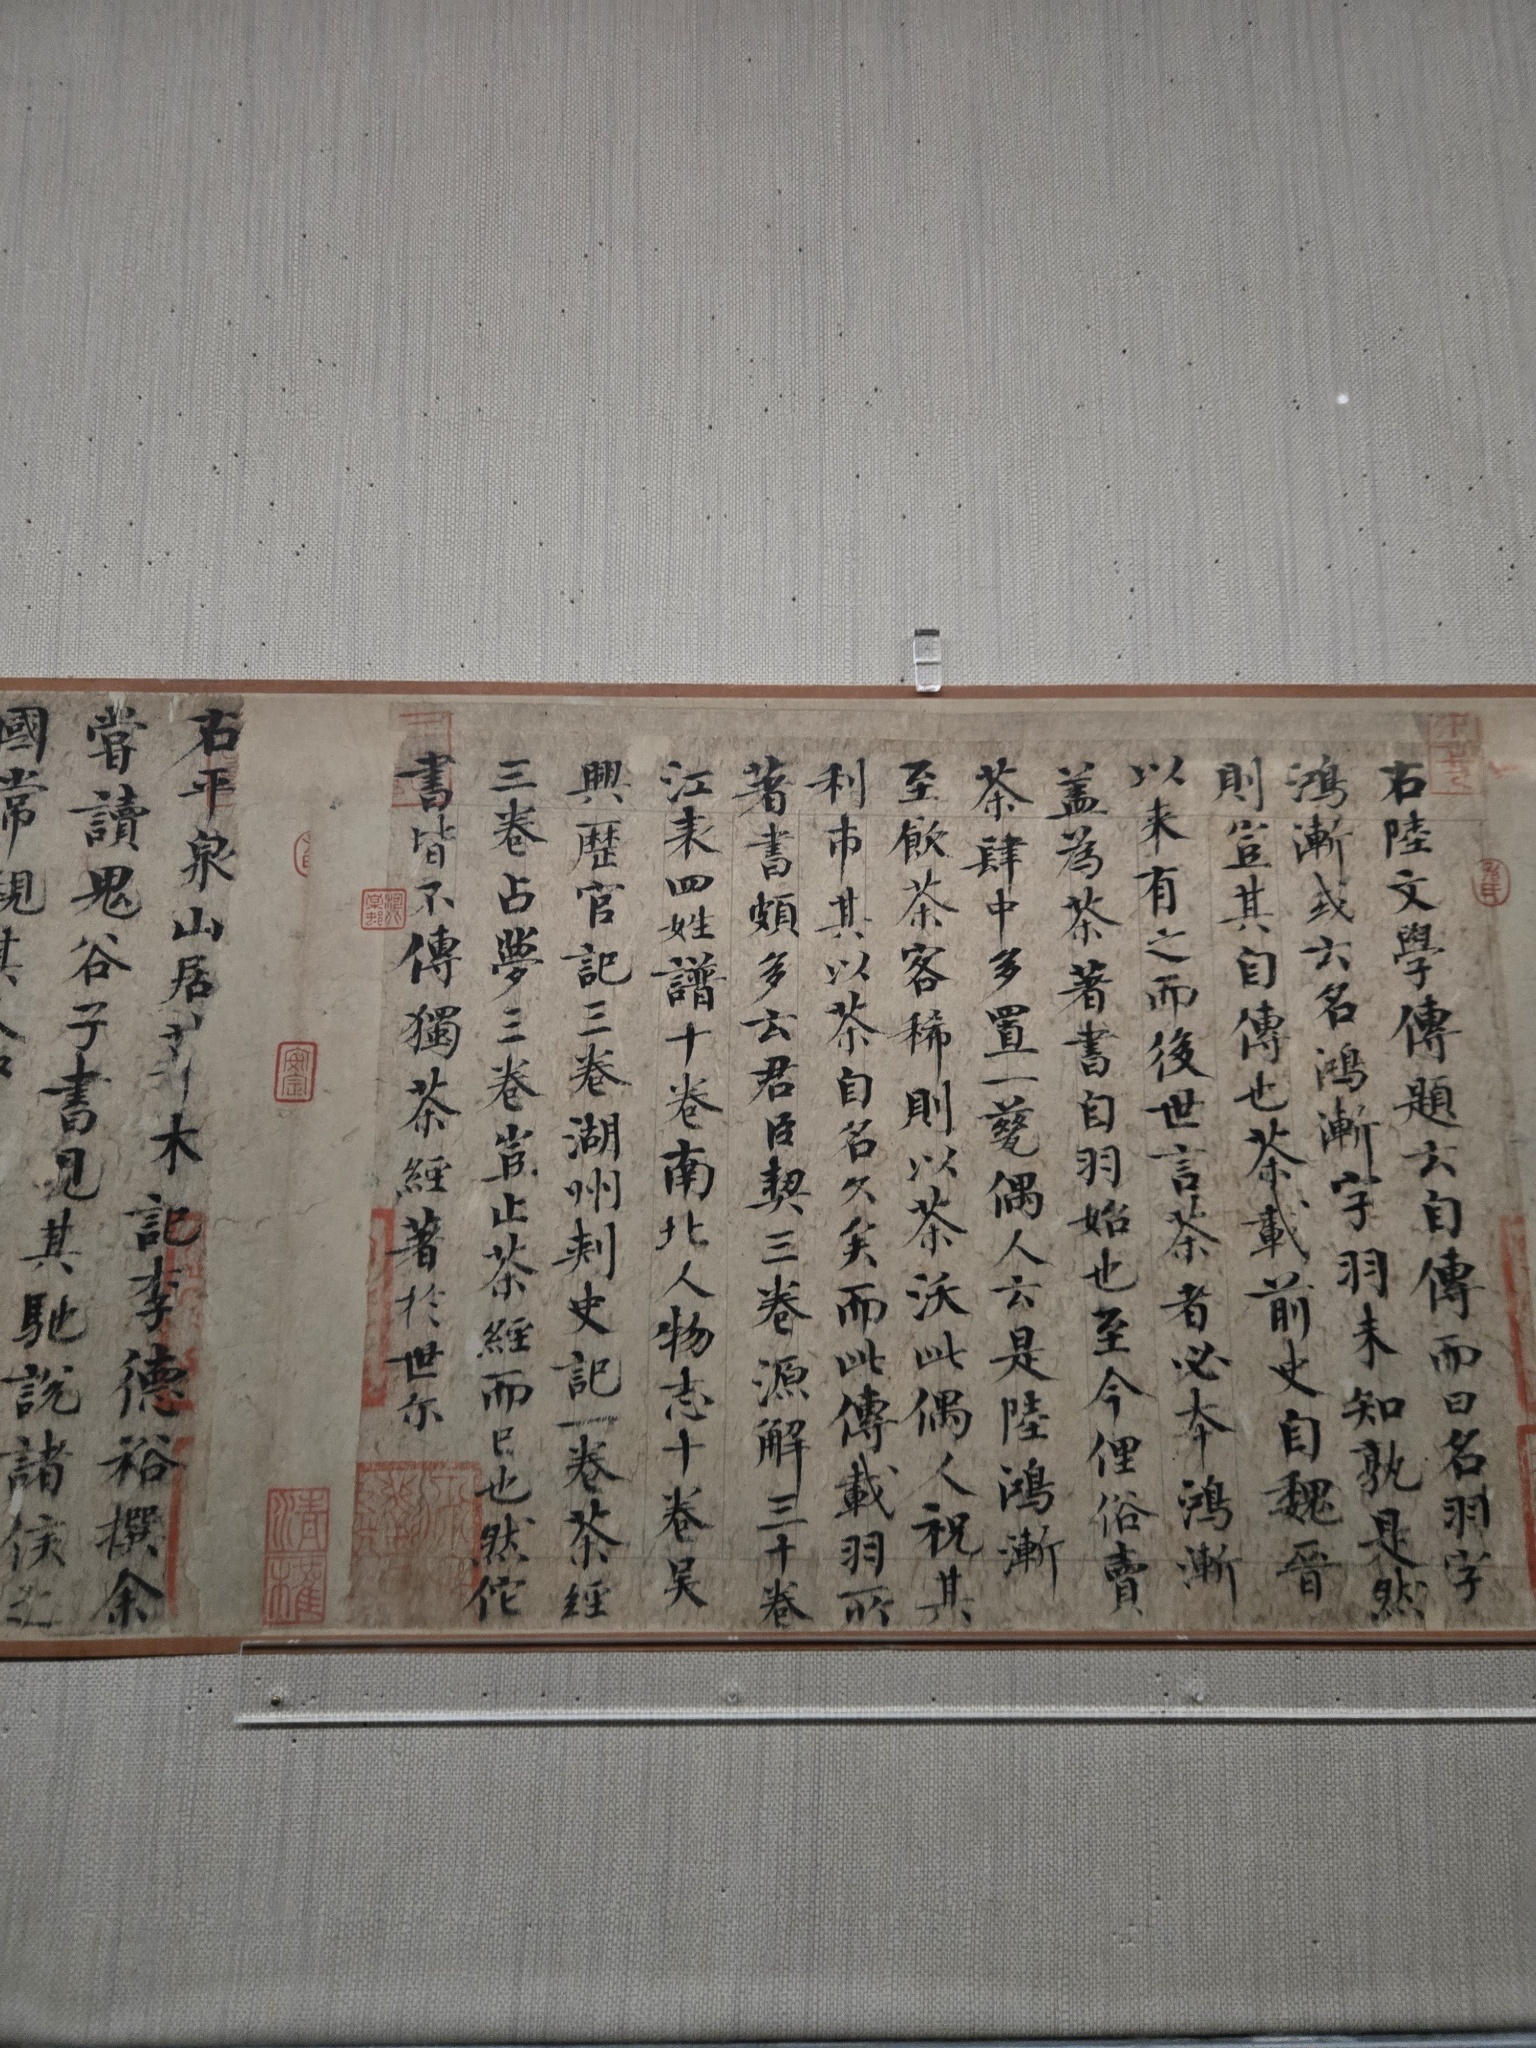 右陸文學傳題云自傳而曰名羽字
鴻漸或云名鴻漸字羽未知孰是然
則豈其自傳也茶載前史自魏晉
以来有之而後世言茶者必夲鴻漸
盖為茶著書自羽始也至今俚俗賣
茶肆中多置一甆偶人云是陸鴻漸
至飲茶客稀則以茶沃此偶人祝其
利市其以茶自名久矣而此傳載羽所
著書頗多云君臣契三卷源解三十卷
江表四姓譜十卷南北人物志十卷吴
興歷官記三卷湖州刺史記一卷茶經
三卷占夢三卷豈止茶經而已也然佗
書皆不傳獨茶經著於世尔
右平泉山居草木記李德裕撰余
嘗讀鬼谷子書見其馳說諸侯之
國常視其